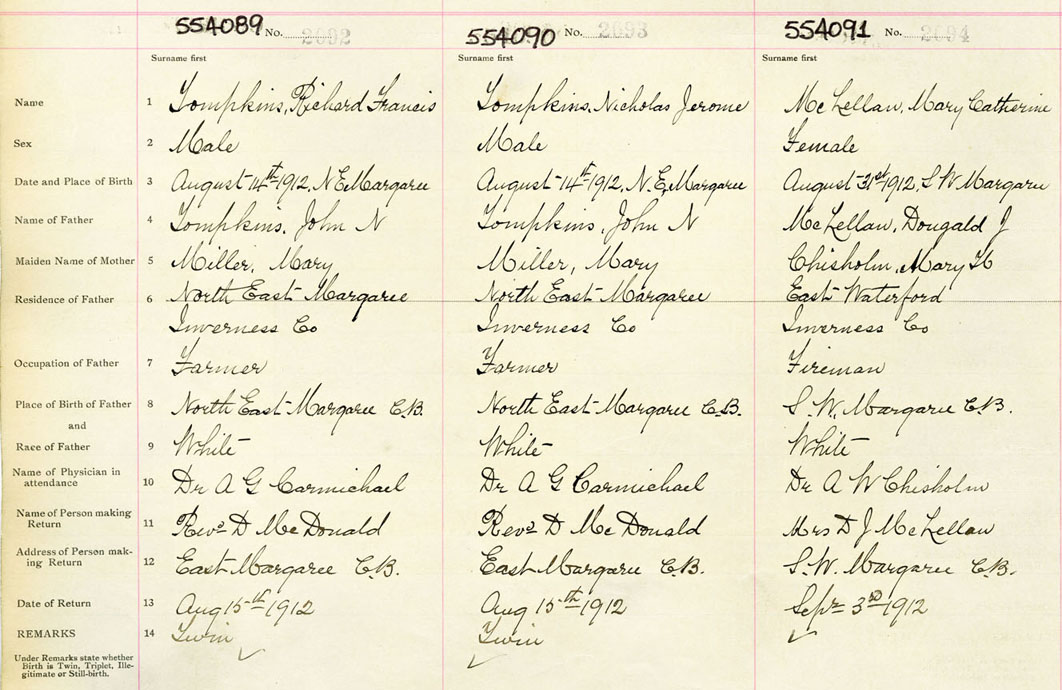 554089 No. 2092
554090 No. 2093
554091 No. 2094
Surname first Surname first Surname first
Name 1 Tompkins, Richard Francis Tompkins, Nicholas Jerome McLellan, Mary Catherine
Sex 2 Male Male Female
Date and Place of Birth 3 August 14th 1912, N E Margaree August 14th 1912, N. E. Margaree August 31st 1912, S W Margaree
Name of Father 4 Tompkins, John N Tompkins, John N McLellan, Dougald J
Maiden Name of Mother 5 Miller, Mary Miller, Mary Chisholm, Mary H
Residence of Father 6 North East Margaree North East Margaree East Waterford
Inverness Co Inverness Co Inverness Co
Occupation of Father 7 Farmer Farmer Fireman
Place of Birth of Father 8 North East Margaree C.B. North East Margaree C.B. S. W. Margaree C.B.
and
Race of Father 9 White White White
Name of Physician in
attendance 10 Dr A G Carmichael Dr A G Carmichael Dr A W Chisholm
Name of Person making
Return 11 Revd D McDonald Revd D McDonald Mrs D J McLellan
Address of Person mak-
ing Return 12 East Margaree C.B. East Margaree C.B. S. W. Margaree C.B.
Date of Return 13 Aug 15th 1912 Aug 15th 1912 Sepr 3rd 1912
REMARKS 14 Twin Twin
Under Remarks state whether
Birth is Twin, Triplet, Ille-
gitimate or Still-birth.